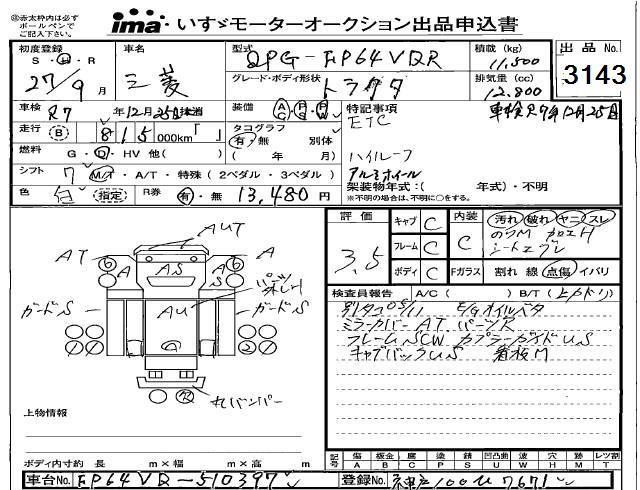 ㊟赤太枠内は必ず
ボールペンで
ご記入下さい。
ima いすゞモーターオークション出品申込書
初度登録
S・H・R
27/9月
車名
三菱
型式
QPG-FP64VDR
グレード・ボディ形状
トラクタ
積載 (kg)
11,500
排気量 (cc)
12,800
出品 No.
3143
車検 R7年12月25日
装備 AC PS PW
特記事項
車検R7年12月25日
ETC
ハイルーフ
アルミホイール
走行 B 815,000km「 」
タコグラフ
有・無 別体
( 年 月)
燃料 G・D・HV 他( )
シフト 7 M/T・A/T・特殊(2ペダル・3ペダル)
架装物年式:( 年式)・不明
※不明の場合は、不明に○をする。
色 白 (指定)
R券 有・無 13,480円
評価
3.5
キャブ C
フレーム C
ボデイ C
内装 C
汚れ 破れ ヤニ スレ
Fガラス 割れ 線 点傷 イバリ
検査員報告 A/C ( ) B/T (
別タコ05/11 E/Gオイルベタ
ミラーカバーAT パーツ欠
フレームSCW カプラーガイドUS
キャブバックUS 看板M
AUT
AT
A
AS
A
AT
6
6
AU
ガードS
ガードS
欠
バンパー
上物情報
ボディ内寸約 長 m×幅 m×高 m
記号
傷 板金 腐 塗 錆 凹凸曲 波 穴 ヒメ レツ割
A B C P S U W H M T
車台No. FP64VDR-510397
登録No. 神戸100い7671